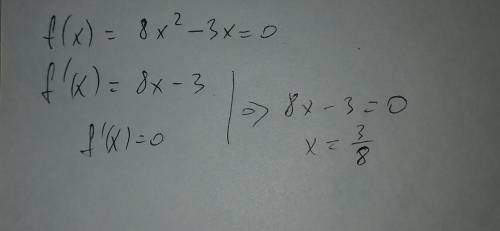 f(x) = 8x² - 3x = 0
f'(x) = 8x - 3
f'(x) = 0
⇒ 8x - 3 = 0
x = 3/8